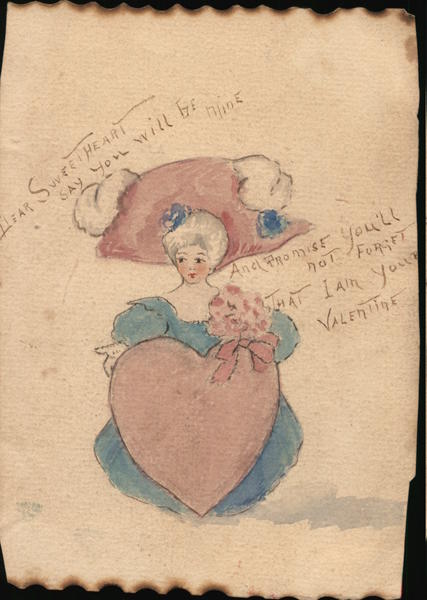 Dear Sweetheart
Say you will be mine
And Promise You'll
not Forget
That I am Your
Valentine